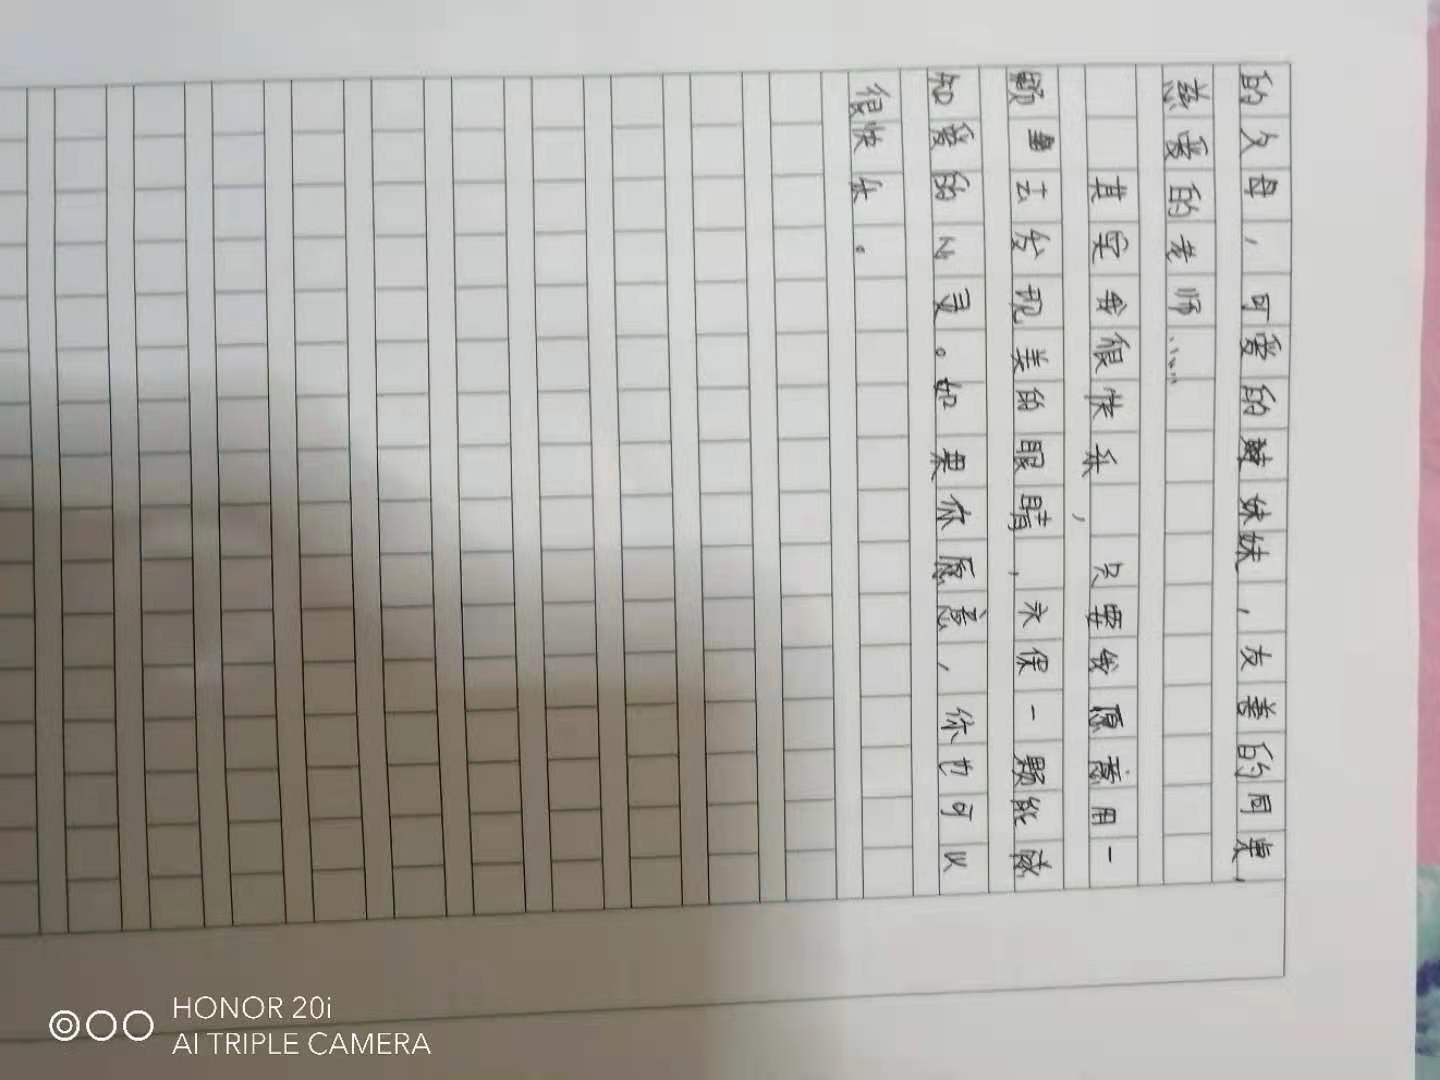 的父母，可爱的妹妹，友善的同桌，
慈爱的老师……
其实我很快乐，只要我愿意用一
颗去发现美的眼睛，永保一颗能感
知爱的心灵。如果你愿意，你也可以
很快乐。
HONOR 20i
AI TRIPLE CAMERA